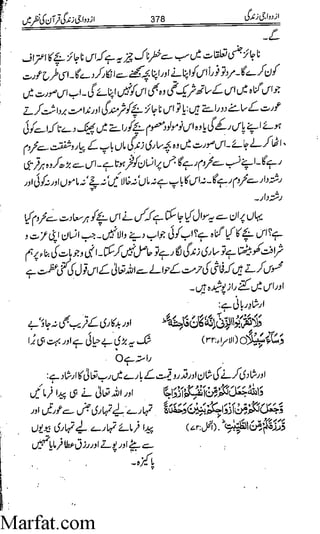 ازدواجی زندگی 378 ازدواجی زندگی قرآن کی نظر میں
گے۔
ناجائز جنسی تعلقات میں سب سے خطرناک چیز یہ ہے کہ اس ناجائز بچے کا اعتراف
کون کرے گا۔ مرد تو فوراً اس کو اپنانے اور اپنا بچہ سمجھنے سے انکار کر دے گا۔ اسی طرح عورت
جو اس گناہ میں اس کے ساتھ شریک تھی وہ بھی اس کو نہیں اپنائے گی۔ اب اس صورت میں
عورت کے سامنے دو راستے ہیں: یا تو اس ناجائز بچے کو شرمندگی اور ندامت برداشت کرتے
ہوئے اپنے پاس رکھے گی یا وہ اس نومولود معصوم بچے کو راستے میں پھینک دے تا کہ اسے کوئی
اٹھا کر لے جائے۔ اس صورت میں یہ بچہ ساری زندگی ماں باپ کے پیار و شفقت سے محروم
رہے گا۔ اپنے نسب سے محروم رہے گا جس پر انسان کو فخر ہوتا ہے۔ اس سے بڑھ کر وہ ہر قریبی
رشتہ دار سے محروم رہے گا۔ نہ اس کا باپ ہے نہ ماں نہ خالائیں نہ چچے نہ ماموں اور نہ کوئی اور
رشتہ دار۔
یہاں پر ان سے یہ سوال کیا جا سکتا ہے کہ کس نے اس بچے کو ہر سعادت سے محروم کیا
ہے؟ اس بچے کا کیا گناہ ہے؟ اب کوئی جواب دینے والا نہیں۔ جب انسان اپنی عزت و
شرافت کھو بیٹھتا ہے تو ساری زندگی لگا رہے تو حاصل نہیں کر سکتا۔ انہی وجوہات کی بناء پر ہم
محسوس کرتے ہیں کہ فحاشی کی حرمت کے حوالے سے اللہ تعالیٰ کے اس قول کی کتنی عظمت ہے
اور اس میں کتنے راز پوشیدہ ہیں۔
ارشاد ربانی ہے:
وَلَا تَقْرَبُوا الزِّنٰى إِنَّهُ كَانَ فَاحِشَةً اور بدکاری کے قریب بھی نہ جاؤ بے
وَسَاءَ سَبِيلًا ○ (الاسراء:۳۲) شک یہ بڑی بے حیائی ہے اور بہت ہی بُرا
راستہ ہے ○
اور شادی کرنے کی شان اور قدر و قیمت کے بارے میں رب تعالیٰ کا ارشاد ہے:
وَاللّٰهُ جَعَلَ لَكُمْ مِّنْ أَنْفُسِكُمْ أَزْوَاجًا اور اللہ تعالیٰ نے ہی پیدا فرمائیں
وَّجَعَلَ لَكُمْ مِّنْ أَزْوَاجِكُمْ بَنِينَ وَحَفَدَةً تمہارے لیے تمہاری جنس سے عورتیں اور
وَّرَزَقَكُمْ مِّنَ الطَّيِّبٰتِ (النحل:۷۲) پیدا فرمائے تمہارے لیے تمہاری بیویوں
سے بیٹے اور پوتے اور رزق عطا فرمایا تمہیں
پاکیزہ۔
Marfat.com